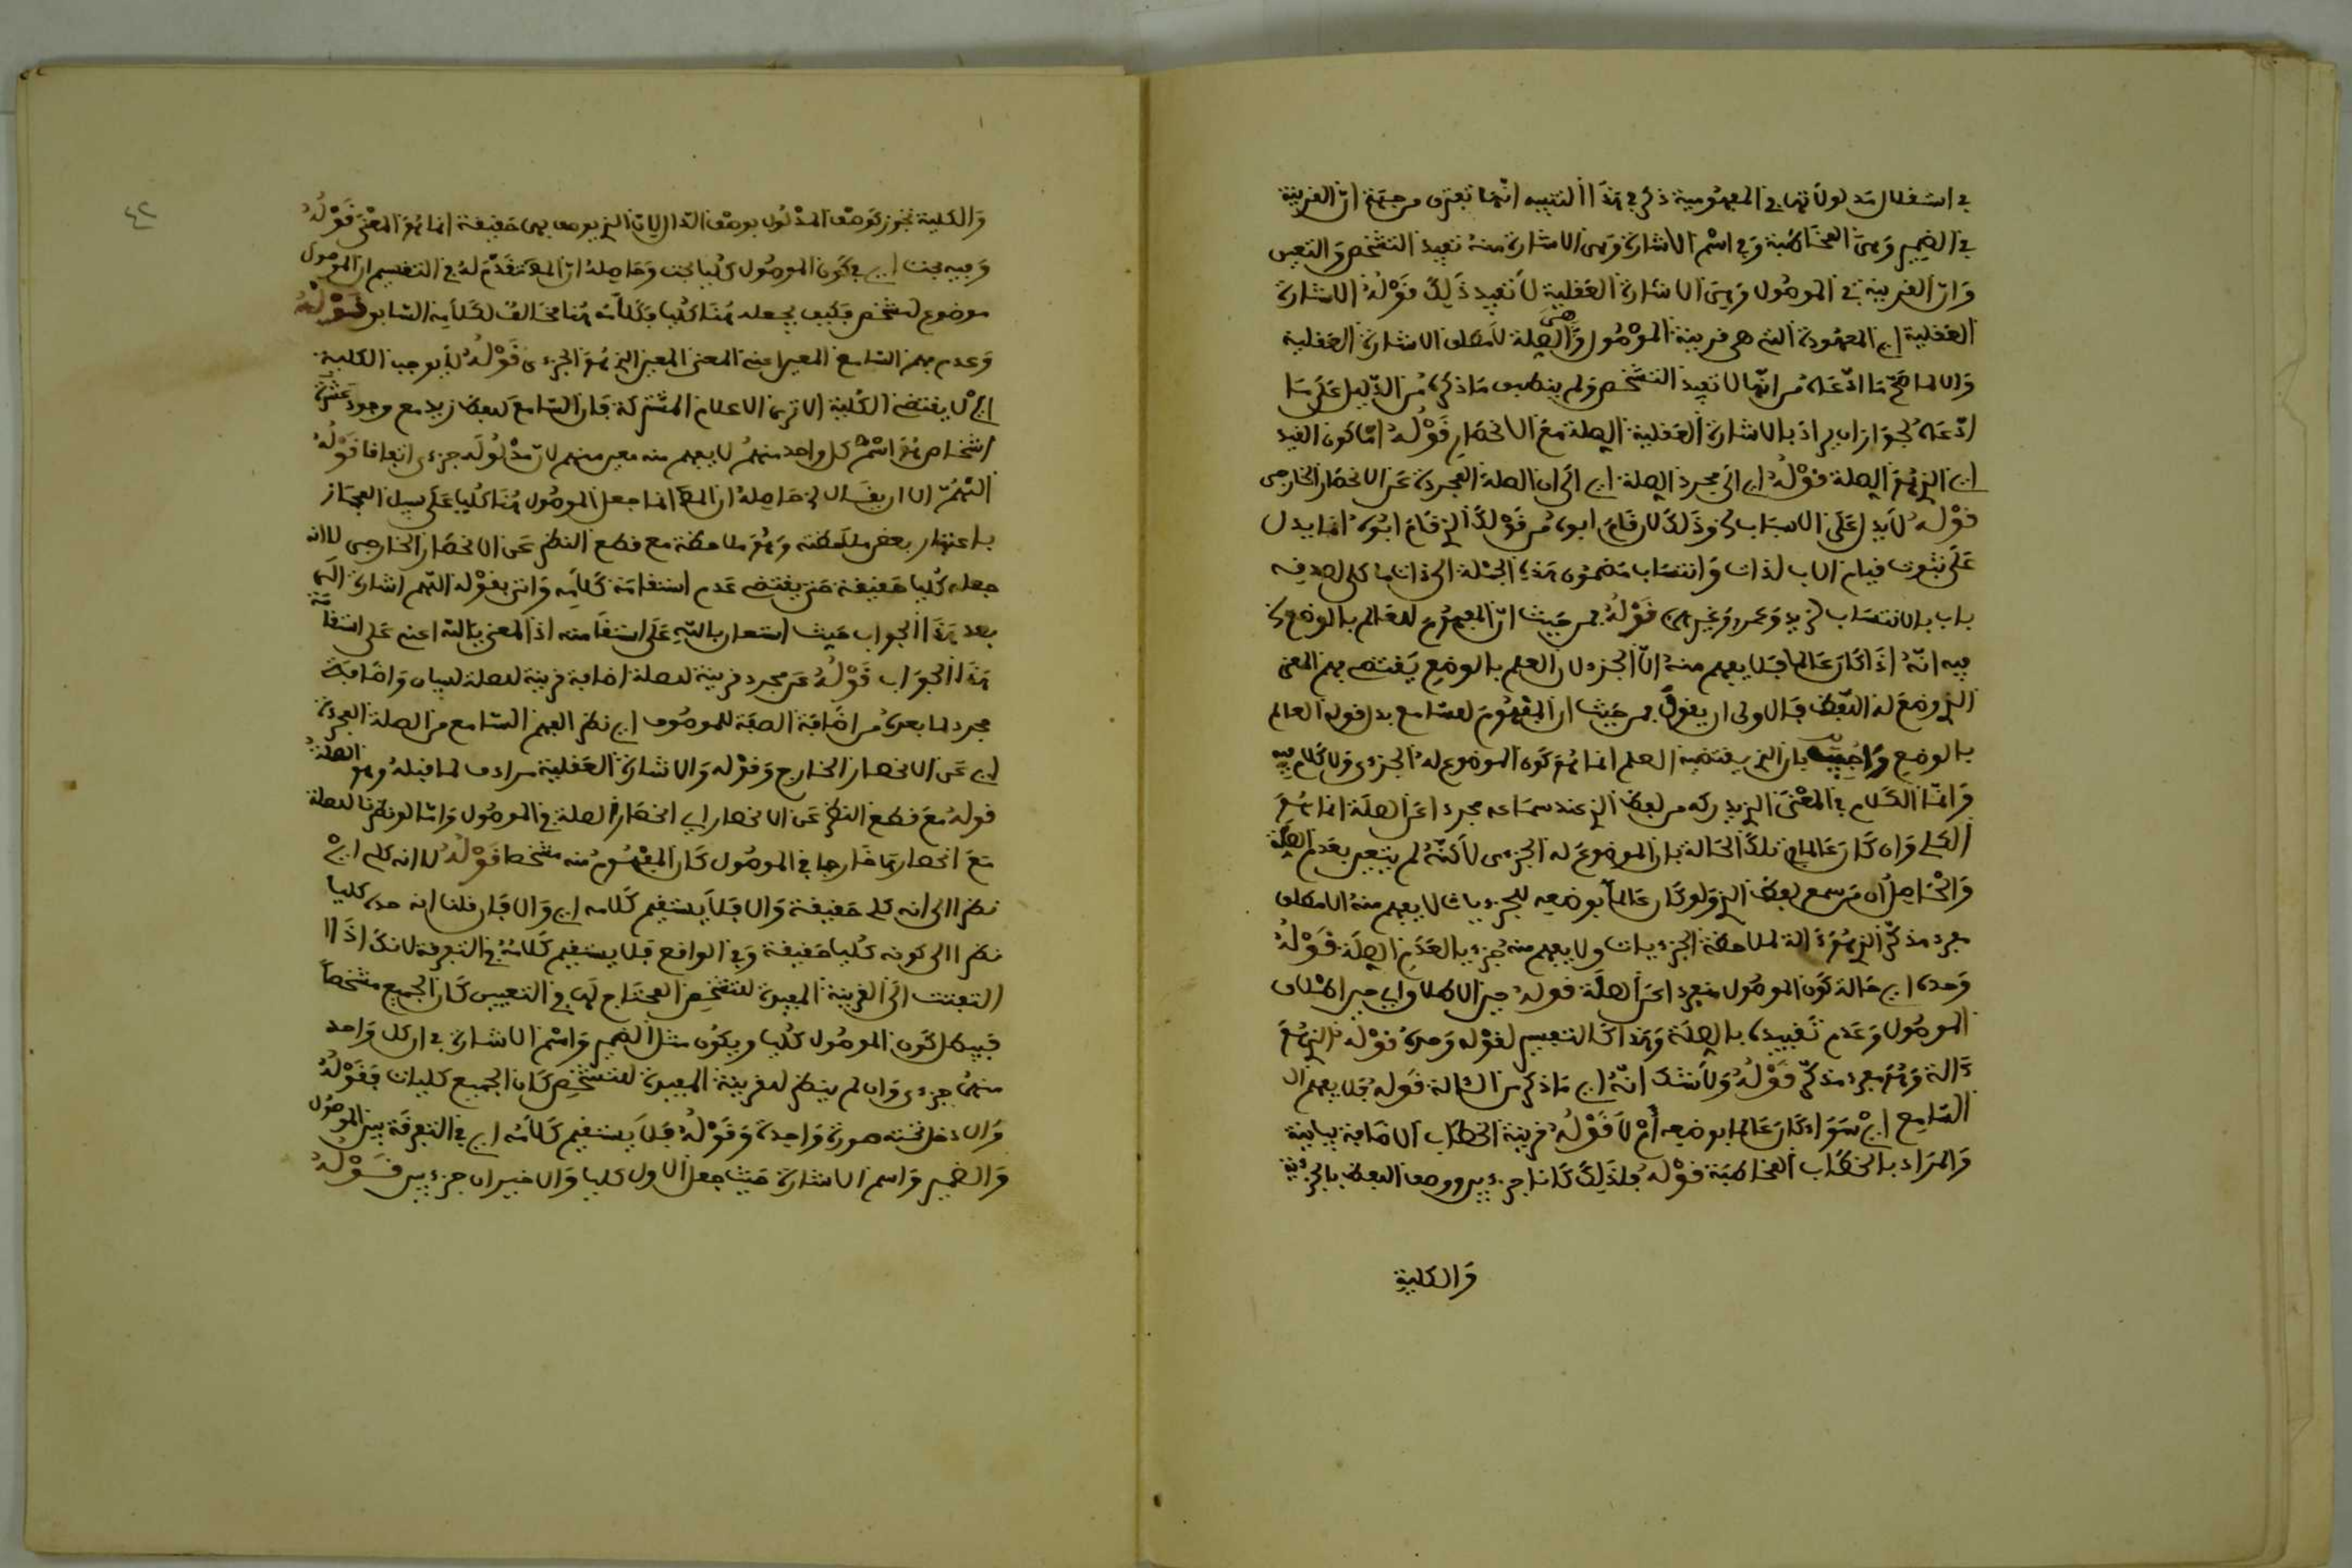 في استقلال مدلولاتها في المفهومية ذكر في هذا التنبيه انها تفترق من جهة ان القرينة
في الضمير وهي المخاطبة وفي اسم الاشارة وهي الاشارة منه تفيد التشخص والتعين
وان القرينة في الموصول وهي الاشارة العقلية لا تفيد ذلك قوله الاشارة
العقلية اي المعهودة التي هي قرينة الموصول وهي الصلة لا مطلق الاشارة العقلية
والا لما صح ما ادعاه من انها لا تفيد التشخص ولم ينطبق ما ذكره من الدليل على ما
ادعاه لجواز ان يراد بالاشارة العقلية الصلة مع الانحصار قوله اما كون القيد
اي الذي هو الصلة قوله اي الى مجرد الصلة اي الى ان الصلة المجردة عن الانحصار الخارجي
قوله لا يدل على الانتساب وذلك لان قام ابوه من قولك الذي قام ابوه انما يدل
على ثبوت قيام الاب لذات وانتساب مضمون هذه الجملة الى ذات ما كلي لصدقه
باب بالانتساب لزيد وعمرو وغيرهما قوله من حيث ان المفهوم للعالم بالوضع
فيه انه اذا كان عالما فلا يفهم منه الا الجزء لان العلم بالوضع يقتضي فهم المعنى
الذي وضع له اللفظ فالاولى ان يقول من حيث ان المفهوم للسامع بدل قوله العالم
بالوضع واجيب بان الذي يقتضيه العلم انما هو كون الموضوع له الجزءي ولا كلام فيه
وانما الكلام في المعنى الذي يدركه من لفظ الذي عند سماعه مجردا عن الصلة انما هو
الكلي وان كان عالما في تلك الحالة بان الموضوع له الجزءي لاكنه لم يتعين بعدم الصلة
والحاصل ان من سمع لفظ الذي ولو كان عالما بوضعه للجزءيات لا يفهم منه الا مطلق
مفرد مذكر الذي هو ءالة لملاحظة الجزءيات ولا يفهم منه جزءيا لعدم الصلة قوله
وحده اي حالة كون الموصول منفردا عن الصلة قوله حين الاطلاق اي حين اطلاق
الموصول وعدم تقييده بالصلة وهذا كالتفسير لقوله وحده قوله الذي هو
ءالة وهو مفرد مذكر قوله ولا شك انه اي ما ذكر من الالة قوله فلا يفهم
السامع اي سواء كان عالما بوضعه ام لا قوله قرينة الخطاب الاضافة بيانية
والمراد بالخطاب المخاطبة قوله فلذلك كانا جزءيين ووصف اللفظ بالجزءية
والكلية
٤٢
والكلية تجوز كوصف المدلول بوصف الدال لان الذي يوصف بهما حقيقة انما هو المعنى قوله
وفيه بحث اي في كون الموصول كليا بحث وحاصله ان المص تقدم له في التقسيم ان الموصول
موضوع لمشخص فكيف يجعله هنا كليا فكلامه هنا مخالف لكلامه السابق قوله
وعدم فهم السامع المعين اعني المعنى المعين الذي هو الجزءي قوله لا يوجب الكلية
اي لا يقتضي الكلية الا ترى الاعلام المشتركة فان السامع للفظ زيد مع وجود عشرة
اشخاص هو اسم كل واحد منهم لا يفهم منه معين منهم لان مدلوله جزءي اتفاقا قوله
اللهم الا ان يقال حاصله ان المص انما جعل الموصول هنا كليا على سبيل المجاز
باعتبار بعض ملاحظته وهو ملاحظة مع قطع النظر عن الانحصار الخارجي لا انه
جعله كليا حقيقة حتى يقتضي عدم استقامة كلامه واتى بقوله اللهم اشارة الى
بعد هذا الجواب حيث استعان بالله على استقامته اذ المعنى يا الله اعني على استقامة
هذا الجواب قوله عن مجرد قرينة لصلة اضافة قرينة لصلة للبيان واضافة
مجرد لما بعده من اضافة الصفة للموصوف اي نظر الفهم السامع من الصلة المجردة
اي عن الانحصار الخارج وقوله والاشارة العقلية مرادف لما قبله وهو الصلة
قوله مع قطع النظر عن الانحصار اي انحصار الصلة في الموصول واما لو نظرنا للصلة
مع انحصارها خارجا في الموصول كان المفهوم منه مشخصا قوله لا انه كلي اي
نظرا الى انه كلي حقيقة والا فلا يستقيم كلامه اي والا فان قلنا انه عده كليا
نظرا الى كونه كليا حقيقة وفي الواقع فلا يستقيم كلامه في التفرقة لانك اذا
التفتت الى القرينة المفيدة للتشخص المحتاج لها في التعيين كان الجميع مشخصا
فيبطل كون الموصول كليا ويكون مثل الضمير واسم الاشارة في ان كل واحد
منهما جزءي وان لم ينظر لقرينة المفيدة للتشخص كان الجميع كليات فقوله
والا دخل تحته صورة واحدة وقوله فلا يستقيم كلامه اي في التفرقة بين الموصول
والضمير واسم الاشارة حيث جعل الاول كليا والاخيران جزءيين قوله